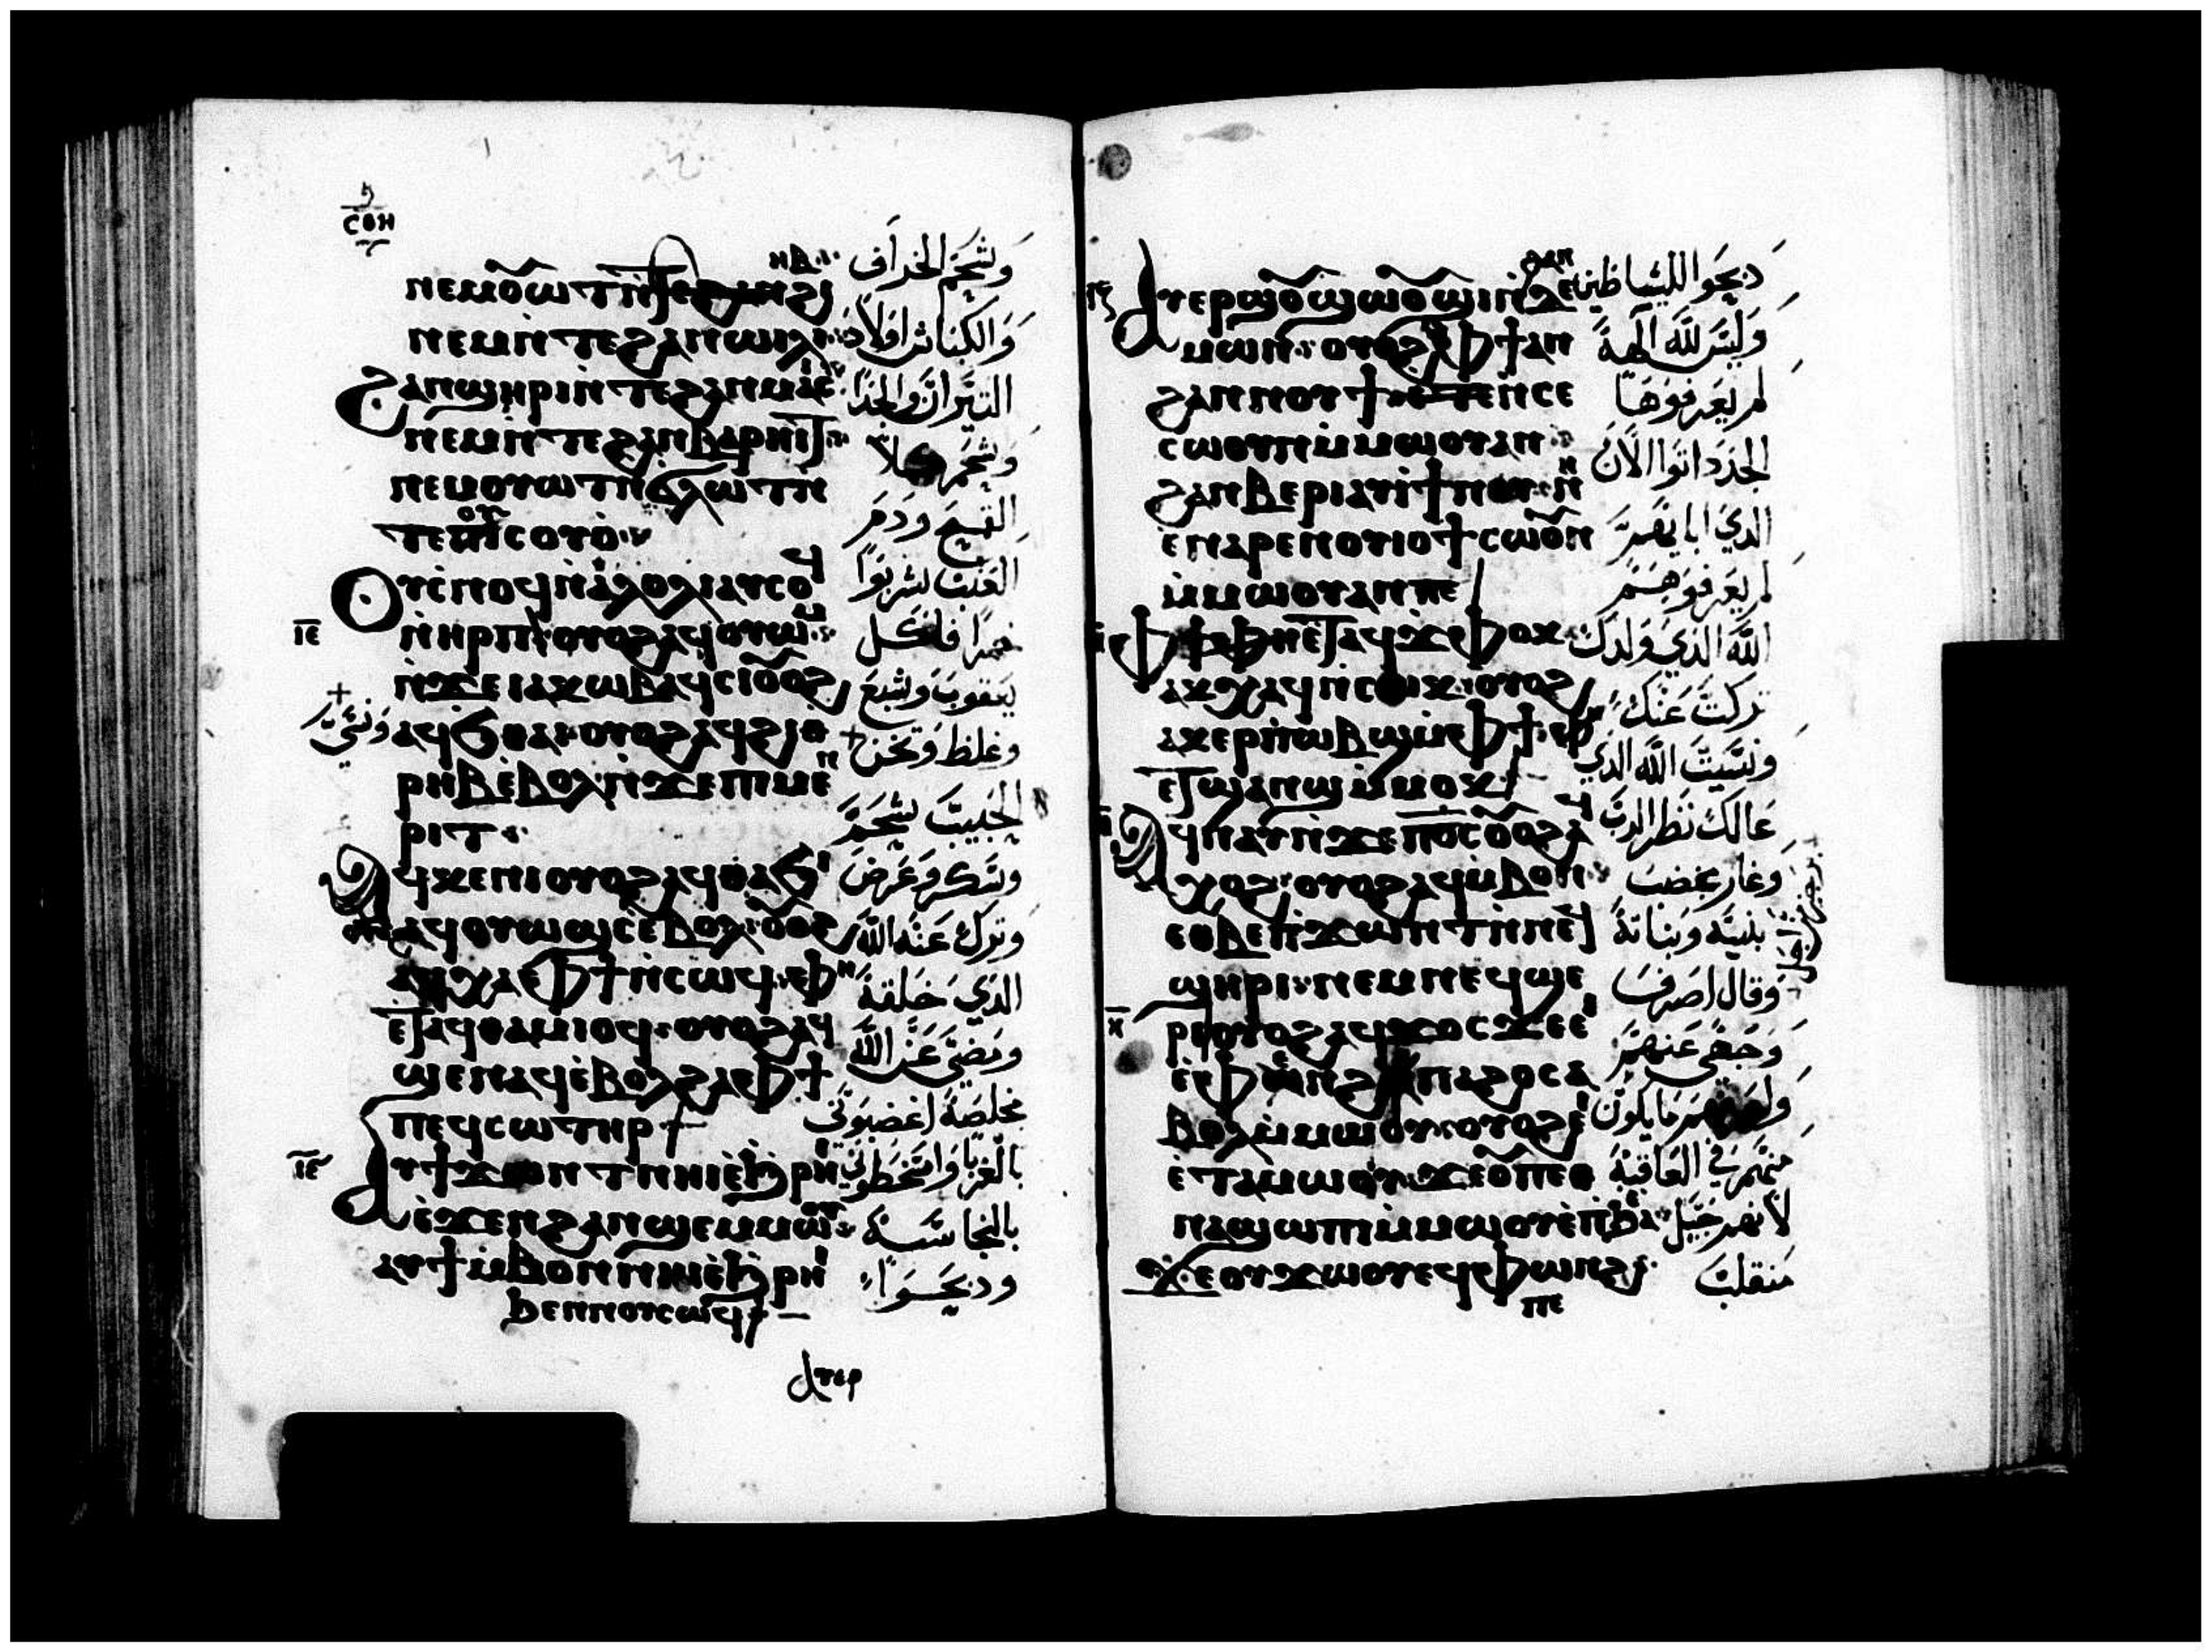 ⲥⲟⲏ
ⲛⲉⲙⲛ̀ⲧⲉϩⲁⲛⲱⲓⲗⲓ
ϩⲁⲛϣⲏⲣⲓⲛ̀ⲧⲉϩⲁⲛⲙⲁⲥ
ⲛⲉⲙⲛ̀ⲧⲉϩⲁⲛⲃⲁⲣⲏⲓⲧ
ⲛⲉⲙⲟⲩⲱⲧⲛ̀ϭⲗⲱⲧⲛ̀
ⲧⲉⲡⲓⲥⲟⲩⲟ
ⲟⲩⲥ̀ⲛⲟϥⲛ̀ⲁ̀ⲗⲟⲗⲓⲁⲩⲥⲟϥ
ⲓⲉ ⲛ̀ⲏⲣⲡ ⲟⲩⲟϩⲁϥⲟⲩⲱⲙ
ⲛ̀ϫⲉⲓⲁⲕⲱⲃⲁϥⲥⲓⲟⲩⲟϩ
ⲁϥϭⲑⲁⲓ ⲟⲩⲟϩⲁϥϩⲓⲟ
ⲣⲏⲃⲉ̀ⲃⲟⲗ ⲛ̀ϫⲉⲡⲓⲙⲉⲛ
ⲣⲓⲧ
ⲁϥⲕⲉⲛⲓⲟⲩⲟϩⲁϥⲑⲁϭⲓ
ⲁϥⲟⲩⲱϣⲥ ⲉ̀ⲃⲟⲗ ⲟⲩⲟϩ
ⲁϥⲭⲁⲫϯⲛ̀ⲥⲱϥ ⲫⲏ
ⲉⲧⲁϥⲑⲁⲙⲓⲟϥ ⲟⲩⲟϩⲁϥ
ϣⲉⲛⲁϥⲉ̀ⲃⲟⲗϩⲁⲫϯ
ⲡⲉϥⲥⲱⲧⲏⲣ
ⲓⲉ ⲁⲩϯϫⲱⲛⲧⲛⲏⲓⲉ̀ϧⲣⲏⲓ
ⲉ̀ϫⲉⲛϩⲁⲛϣⲉⲙⲙⲱⲟⲩ
ⲁⲩϯⲙ̀ⲃⲟⲛⲛⲏⲓⲉ̀ϧⲣⲏⲓ
ϧⲉⲛⲛⲟⲩⲥⲱϥ
ⲁⲩⲉⲣ
وشحم الخراف
والكباش اولاد
التيران والجدا
القمح ودم
العنب لشربوا
خمرا فاكل
يعقوب وشبع
وغلظ وتخن
الحبيب شحم
وترك عنه الله
الذي خلقه
ومضى عن الله
مخلصه اغضبوني
بالغربا واسخطوني
بالنجاسة
ودبحوا
ⲁⲩⲉⲣϣⲟⲩϣⲱⲟⲩϣⲓⲛ̀ϩⲁⲛⲇⲉ
ⲙⲱⲛ ⲟⲩⲟϩⲫϯⲁⲛ
ϩⲁⲛⲛⲟⲩϯ ⲉ̀ⲧⲉⲛ̀ⲥⲉ
ⲥⲱⲟⲩⲛⲙ̀ⲙⲱⲟⲩⲁⲛ
ϩⲁⲛⲃⲉⲣⲓⲁⲩⲓ̀
ⲉ̀ⲛⲁⲣⲉⲛⲟⲩⲓⲟϯⲥⲱⲟⲩⲛ
ⲙ̀ⲙⲱⲟⲩⲁⲛⲡⲉ
ⲫϯⲫⲏⲉⲧⲁϥϫⲫⲟⲕ
ⲁⲕⲭⲁϥⲛ̀ⲥⲱⲕ ⲟⲩⲟϩ
ⲁⲕⲉⲣⲡ̀ⲱⲃϣⲙ̀ⲫϯ ⲫⲏ
ⲉⲧϣⲁⲛϣⲙ̀ⲙⲟⲕ
ⲁϥⲛⲁⲩⲛ̀ϫⲉⲡⲟ̅ⲥ̅ⲟⲩⲟϩⲁϥ
ⲭⲟϩ ⲟⲩⲟϩⲁϥⲙ̀ⲃⲟⲛ
ⲉⲑⲃⲉⲡ̀ϫⲱⲛⲧⲛ̀ⲛⲉϥ
ϣⲏⲣⲓ ⲛⲉⲙⲛⲉϥϣⲉ
ⲕ ⲣⲓⲟⲩⲟϩⲁϥϫⲟⲥϫⲉⲉⲓ
ⲉ̀ⲫⲱⲛϩ ⲙ̀ⲡⲁϩⲟⲥⲁ
ⲃⲟⲗⲙ̀ⲙⲱⲟⲩ ⲟⲩⲟϩⲉ
ⲉ̀ⲧⲁⲙⲱⲟⲩ ϫⲉⲟⲩⲡⲉⲑ
ⲛⲁϣⲱⲡⲓⲙ̀ⲙⲱⲟⲩⲉ̀ⲡϧⲁⲉ
ϫⲉⲟⲩϫⲱⲟⲩⲉϥⲫⲱⲛϩⲡⲉ
دبحوا للشياطين
وليس لله الهة
لم يعرفوها
الجدد اتوا الان
لم يعرفوهم
الله الذي ولدك
تركت عنك
ونسيت الله الذي
عالك نظر الرب
وغار بغضب
بنيه وبناته
وقال اصرف
وجهي عنهم
منهم في العاقبة
لانهم جيل
منقلب